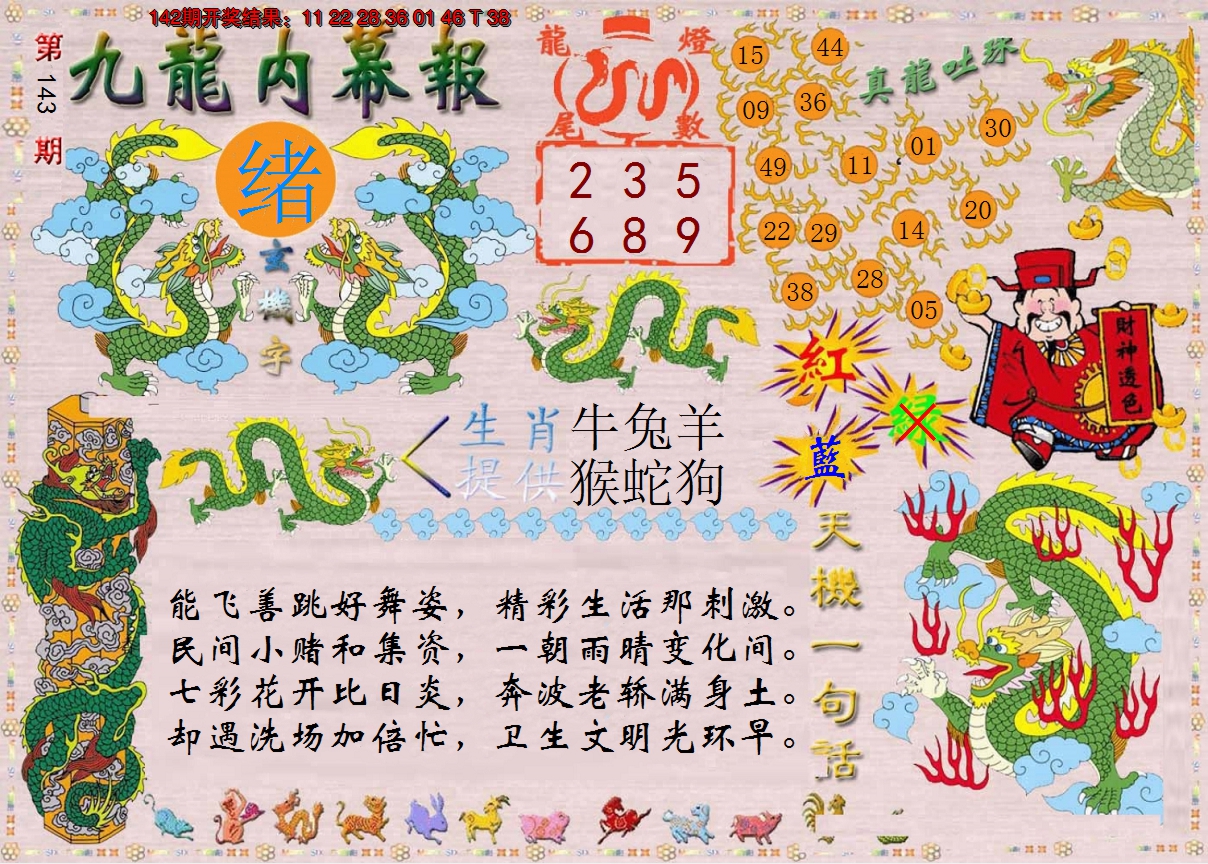 142期开奖结果：11 22 28 36 01 46 T 38
第143期
九龍内幕報
绪
玄機字
龍燈
尾數
2 3 5
6 8 9
真龍吐珠
15 44
09 36
49 11 01 30
22 29 14 20
38 28 05
財神透色
紅
绿
藍
生肖提供
牛兔羊
猴蛇狗
天機一句話
能飞善跳好舞姿，精彩生活那刺激。
民间小赌和集资，一朝雨晴变化间。
七彩花开比日炎，奔波老轿满身土。
却遇洗场加倍忙，卫生文明光环早。